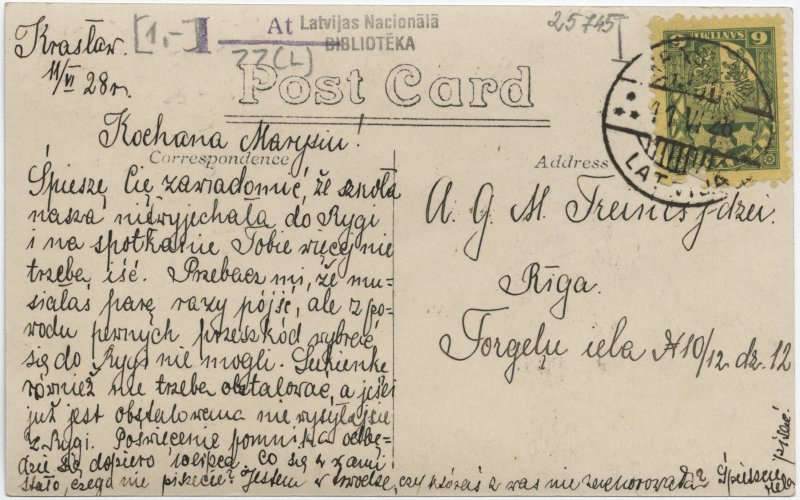 Krasław.
11/VI 28r.
[1,-]
At
Latvijas Nacionālā
BIBLIOTĒKA
25745
22(L)
Post Card
SANTIMI
6
6
LATVIJA
Kochana Marysiu!
Correspondence
Address
Śpieszę Cię zawiadomić, że szkoła
nasza niewyjechała do Rygi
i na spotkanie Tobie więcej nie
trzeba iść. Przebacz mi, że mu-
siałaś parę razy pójść, ale z po-
wodu pewnych przeszkód wybrać
się do Rygi nie mogli. Sukienkę
również nie trzeba obstalować, a jeśli
już jest obstalowana nie wysyłajcie
z Rygi. Poświęcenie pomnika odbę-
dzie się dopiero w lipcu. Co się z wami
stało, czego nie piszecie? Jestem w trwodze, czy któraś z was nie zachorowała? Śpieszcie
pisać.
Hela
A. G. M. Trenisjdzei.
Rīga.
Torgeļu iela N10/12. dz. 12